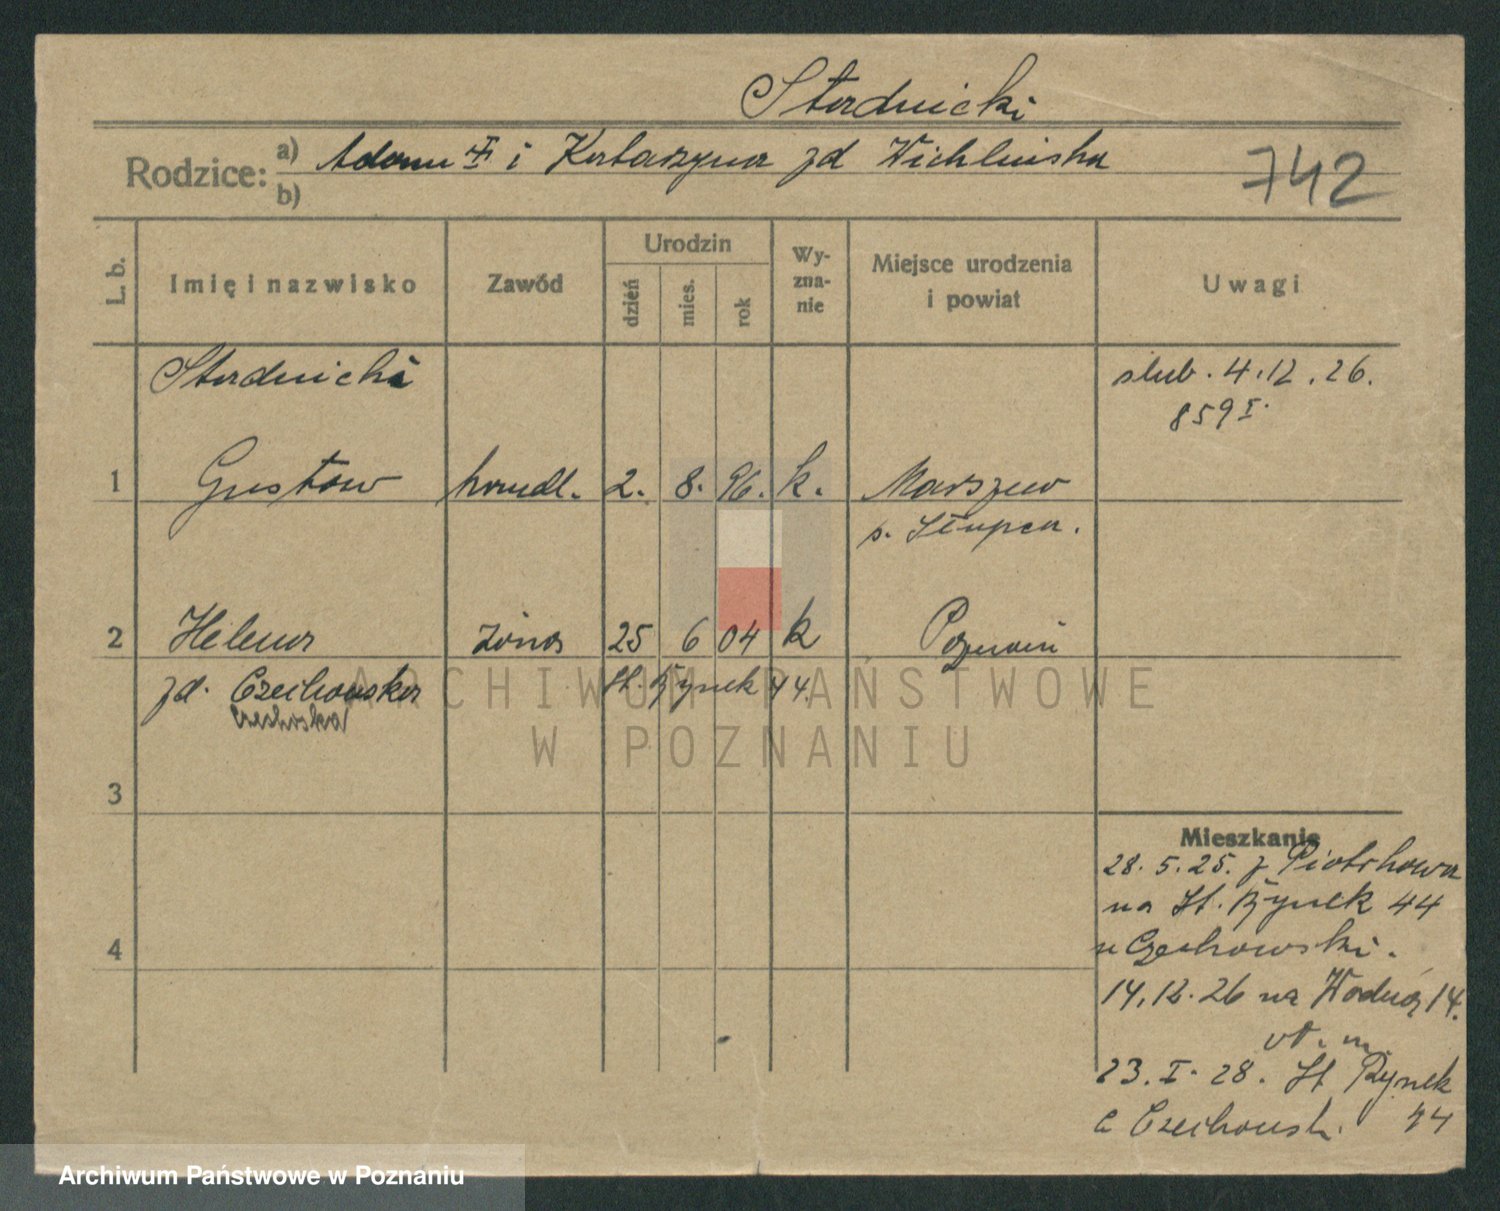 Stardnicki
Rodzice: a) Adam i Katarzyna zd Wichlińska
b)
742
L. b.
Imię i nazwisko
Zawód
Urodzin
dzień
mies.
rok
Wy-
zna-
nie
Miejsce urodzenia
i powiat
Uwagi
Stardnicki
ślub. 4.12.26.
859 I.
1 Gustaw handl. 2. 8. 96. k. Marszew
p. Słupca.
2 Helena żona 25 6 04 k Poznań
zd. Czechowska St. Rynek 44.
Czechoska
3
4
Mieszkanie
28. 5. 25. z Piotrkowa
na St. Rynek 44
u Czechowski.
14.12.26 na Wodną 14.
23. I. 28. St Rynek
44
ARCHIWUM PAŃSTWOWE
W POZNANIU
Archiwum Państwowe w Poznaniu